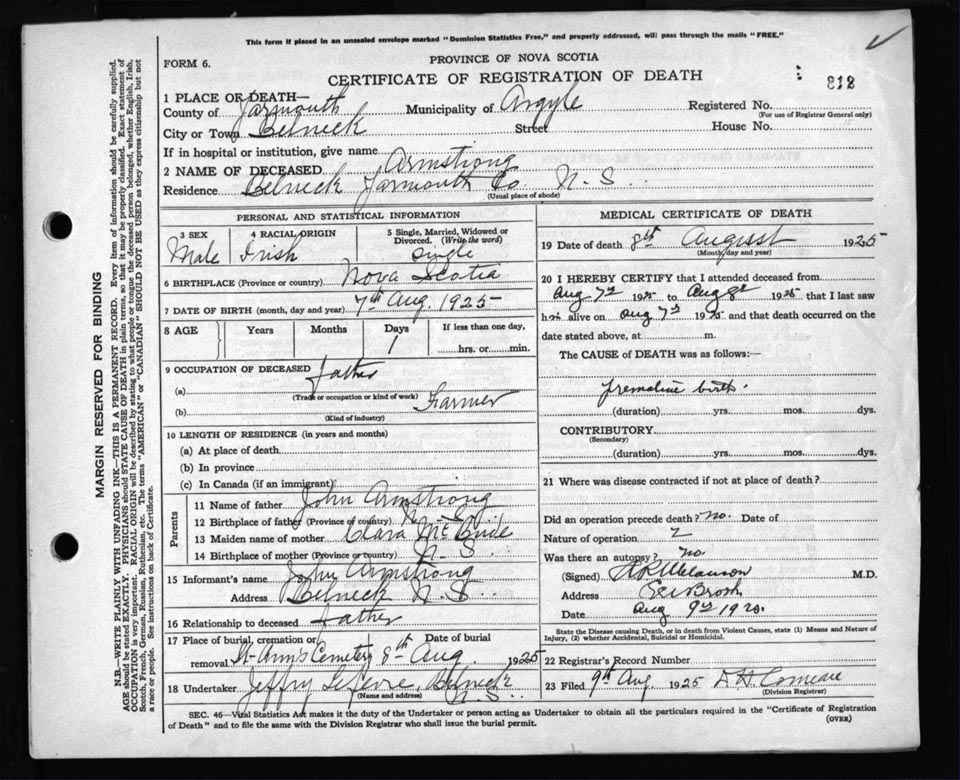 This form if placed in an unsealed envelope marked "Dominion Statistics Free," and properly addressed, will pass through the mails "FREE."
FORM 6.
PROVINCE OF NOVA SCOTIA
CERTIFICATE OF REGISTRATION OF DEATH
812
1 PLACE OF DEATH—
County of Yarmouth Municipality of Argyle Registered No.
(For use of Registrar General only)
City or Town Belneck Street House No.
If in hospital or institution, give name
2 NAME OF DECEASED Armstrong
Residence Belneck Yarmouth Co. N-S
(Usual place of abode)
PERSONAL AND STATISTICAL INFORMATION
3 SEX 4 RACIAL ORIGIN 5 Single, Married, Widowed or Divorced. (Write the word)
Male Irish single
6 BIRTHPLACE (Province or country) Nova Scotia
7 DATE OF BIRTH (month, day and year) 7th Aug. 1925
8 AGE Years Months Days If less than one day,
1 hrs. or min.
9 OCCUPATION OF DECEASED father
(a)
(Trade or occupation or kind of work) Farmer
(b)
(Kind of industry)
10 LENGTH OF RESIDENCE (in years and months)
(a) At place of death
(b) In province
(c) In Canada (if an immigrant)
Parents
11 Name of father John Armstrong
12 Birthplace of father (Province or country) N. S.
13 Maiden name of mother Clara
14 Birthplace of mother (Province or country) N-S
15 Informant's name John Armstrong
Address Belneck N. S.
16 Relationship to deceased father
17 Place of burial, cremation or removal St-Ann's Cemetry Date of burial 8th Aug. 1925
18 Undertaker Jeffry Lefevre, Belneck N S
(Name and address)
MEDICAL CERTIFICATE OF DEATH
19 Date of death 8th August 1925
(Month, day and year)
20 I HEREBY CERTIFY that I attended deceased from
Aug 7th 1925 to Aug 8th 1925 that I last saw
him alive on Aug 7th 1925 and that death occurred on the
date stated above, at m.
The CAUSE OF DEATH was as follows:—
premature birth.
(duration) yrs. mos. dys.
CONTRIBUTORY
(Secondary)
(duration) yrs. mos. dys.
21 Where was disease contracted if not at place of death?
Did an operation precede death? no. Date of
Nature of operation
Was there an autopsy? no
(Signed) Melanson M.D.
Address Eel Brook
Date Aug 9th
State the Disease causing Death, or in death from Violent Causes, state (1) Means and Nature of
Injury, (2) whether Accidental, Suicidal or Homicidal.
22 Registrar's Record Number
23 Filed 9th Aug 1925 Comeau
(Division Registrar)
SEC. 46—Vital Statistics Act makes it the duty of the Undertaker or person acting as Undertaker to obtain all the particulars required in the "Certificate of Registration
of Death" and to file the same with the Division Registrar who shall issue the burial permit.
(OVER)
MARGIN RESERVED FOR BINDING
N.B.—WRITE PLAINLY WITH UNFADING INK—THIS IS A PERMANENT RECORD. Every item of information should be carefully supplied.
AGE should be stated EXACTLY. PHYSICIANS should STATE CAUSE OF DEATH in plain terms, so that it may be properly classified. Exact statement of
OCCUPATION is very important. RACIAL ORIGIN will be described by stating to what people or tongue the deceased person belonged, whether English, Irish,
Scotch, French, German, Russian, Ruthenian, etc. The terms "AMERICAN" or "CANADIAN" SHOULD NOT BE USED as they express citizenship but not
a race or people. See instructions on back of Certificate.